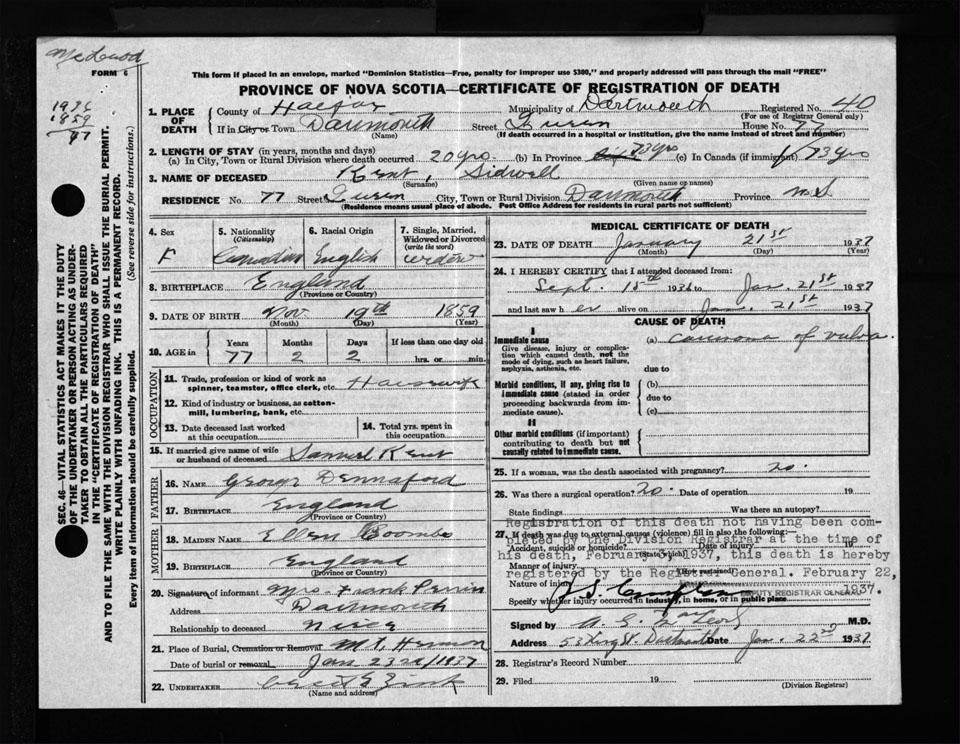 McLeod
FORM 6
1936
1859
77
This form if placed in an envelope, marked "Dominion Statistics—Free, penalty for improper use $300," and properly addressed will pass through the mail "FREE"
PROVINCE OF NOVA SCOTIA—CERTIFICATE OF REGISTRATION OF DEATH
1. PLACE OF DEATH
County of Halifax Municipality of Dartmouth Registered No. 40
(For use of Registrar General only)
If in City or Town Dartmouth Street Queen House No. 77
(Name) (If death occurred in a hospital or institution, give the name instead of street and number)
2. LENGTH OF STAY (in years, months and days)
(a) In City, Town or Rural Division where death occurred 20 yrs. (b) In Province 73 yrs (c) In Canada (if immigrant) 73 yrs
3. NAME OF DECEASED Kent, Sidwell
(Surname) (Given name or names)
RESIDENCE No. 77 Street Queen City, Town or Rural Division Dartmouth Province N.S.
(Residence means usual place of abode. Post Office Address for residents in rural parts not sufficient)
4. Sex
F
5. Nationality
(Citizenship)
Canadian
6. Racial Origin
English
7. Single, Married, Widowed or Divorced
(write the word)
widow
8. BIRTHPLACE England
(Province or Country)
9. DATE OF BIRTH Nov 19th 1859
(Month) (Day) (Year)
10. AGE in Years Months Days If less than one day old
77 2 2 hrs. or min.
OCCUPATION
11. Trade, profession or kind of work as spinner, teamster, office clerk, etc. Housewife
12. Kind of industry or business, as cotton-mill, lumbering, bank, etc.
13. Date deceased last worked at this occupation
14. Total yrs. spent in this occupation
15. If married give name of wife or husband of deceased Samuel Kent
FATHER
16. NAME George Dennaford
17. BIRTHPLACE England
(Province or Country)
MOTHER
18. MAIDEN NAME Ellen Coombs
19. BIRTHPLACE England
(Province or Country)
20. Signature of informant Mrs. Frank
Address Dartmouth
Relationship to deceased niece
21. Place of Burial, Cremation or Removal Mt. Hermon
Date of burial or removal Jan 23rd/1937
22. UNDERTAKER Zink
(Name and address)
MEDICAL CERTIFICATE OF DEATH
23. DATE OF DEATH January 21st 1937
(Month) (Day) (Year)
24. I HEREBY CERTIFY that I attended deceased from:
Sept. 15th 1936 to Jan. 21st 1937
and last saw her alive on Jan. 21st 1937
CAUSE OF DEATH
I
Immediate cause (a) carcinoma of vulva.
Give disease, injury or complication which caused death, not the mode of dying, such as heart failure, asphyxia, asthenia, etc.
due to
Morbid conditions, if any, giving rise to immediate cause (stated in order proceeding backwards from immediate cause).
(b)
due to
(c)
II
Other morbid conditions (if important) contributing to death but not causally related to immediate cause.
25. If a woman, was the death associated with pregnancy? no.
26. Was there a surgical operation? no. Date of operation 19
State findings Was there an autopsy?
27. If death was due to external causes (violence) fill in also the following:
Accident, suicide or homicide? Date of injury 19
(State which)
Manner of injury
Nature of injury
Specify whether injury occurred in industry, in home, or in public place
Registration of this death not having been completed by the Division Registrar at the time of his death, February 3, 1937, this death is hereby registered by the Registrar General. February 22, 1937.
DEPUTY REGISTRAR GENERAL
Signed by M.D.
Address 53 King St. Dartmouth Date Jan. 22nd 1937
28. Registrar's Record Number
29. Filed 19
(Division Registrar)
SEC. 46—VITAL STATISTICS ACT MAKES IT THE DUTY
OF THE UNDERTAKER OR PERSON ACTING AS UNDER-
TAKER TO OBTAIN ALL THE PARTICULARS REQUIRED
IN THE "CERTIFICATE OF REGISTRATION OF DEATH"
AND TO FILE THE SAME WITH THE DIVISION REGISTRAR WHO SHALL ISSUE THE BURIAL PERMIT.
WRITE PLAINLY WITH UNFADING INK. THIS IS A PERMANENT RECORD.
Every item of information should be carefully supplied. (See reverse side for instructions.)